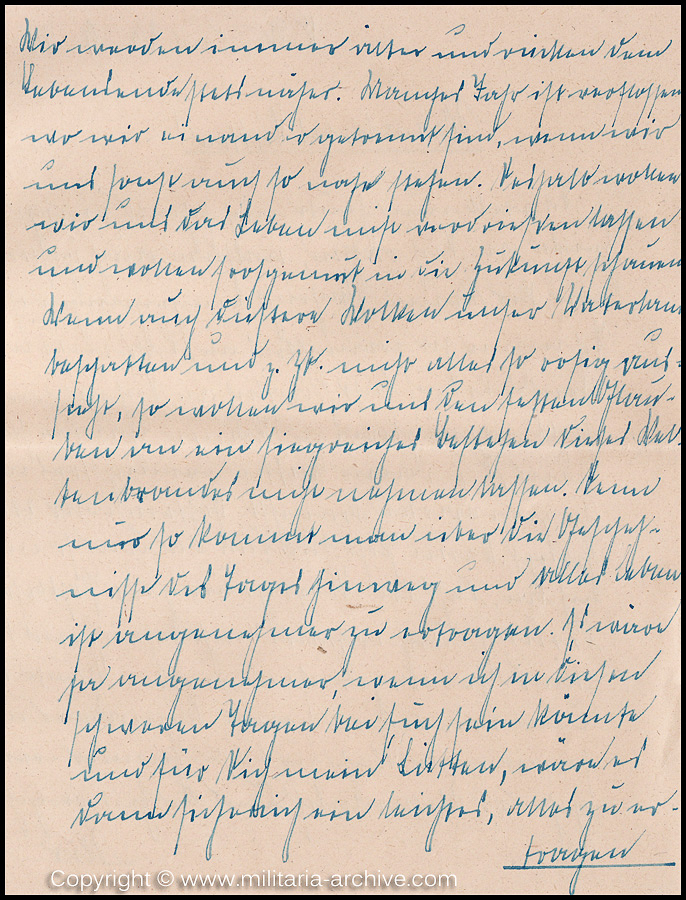 Wir werden immer älter und rücken dem
Lebensende stets näher. Manches Jahr ist verflossen
wo wir einander getrennt sind, wenn wir
uns sonst auch so nahe stehen. Deshalb wollen
wir uns das Leben nicht verdriesen lassen
und wollen frohgemut in die Zukunft schauen
Wenn auch düstere Wolken unser Vaterland
beschatten und z. Zt. nicht alles so rosig aus-
sieht, so wollen wir uns den festen Glau-
ben an ein siegreiches bestehen dieses Wel-
tenbrandes nicht nehmen lassen. Denn
nur so kommt man über die Gescheh-
nisse des Tages hinweg und alles Leben
ist angenehmer zu ertragen. Es wäre
ja angenehmer, wenn ich in diesen
schweren Tagen bei Euch sein könnte
und für Dich mein, wäre es
dann sicherlich ein leichtes, alles zu er-
tragen
Copyright © www.militaria-archive.com